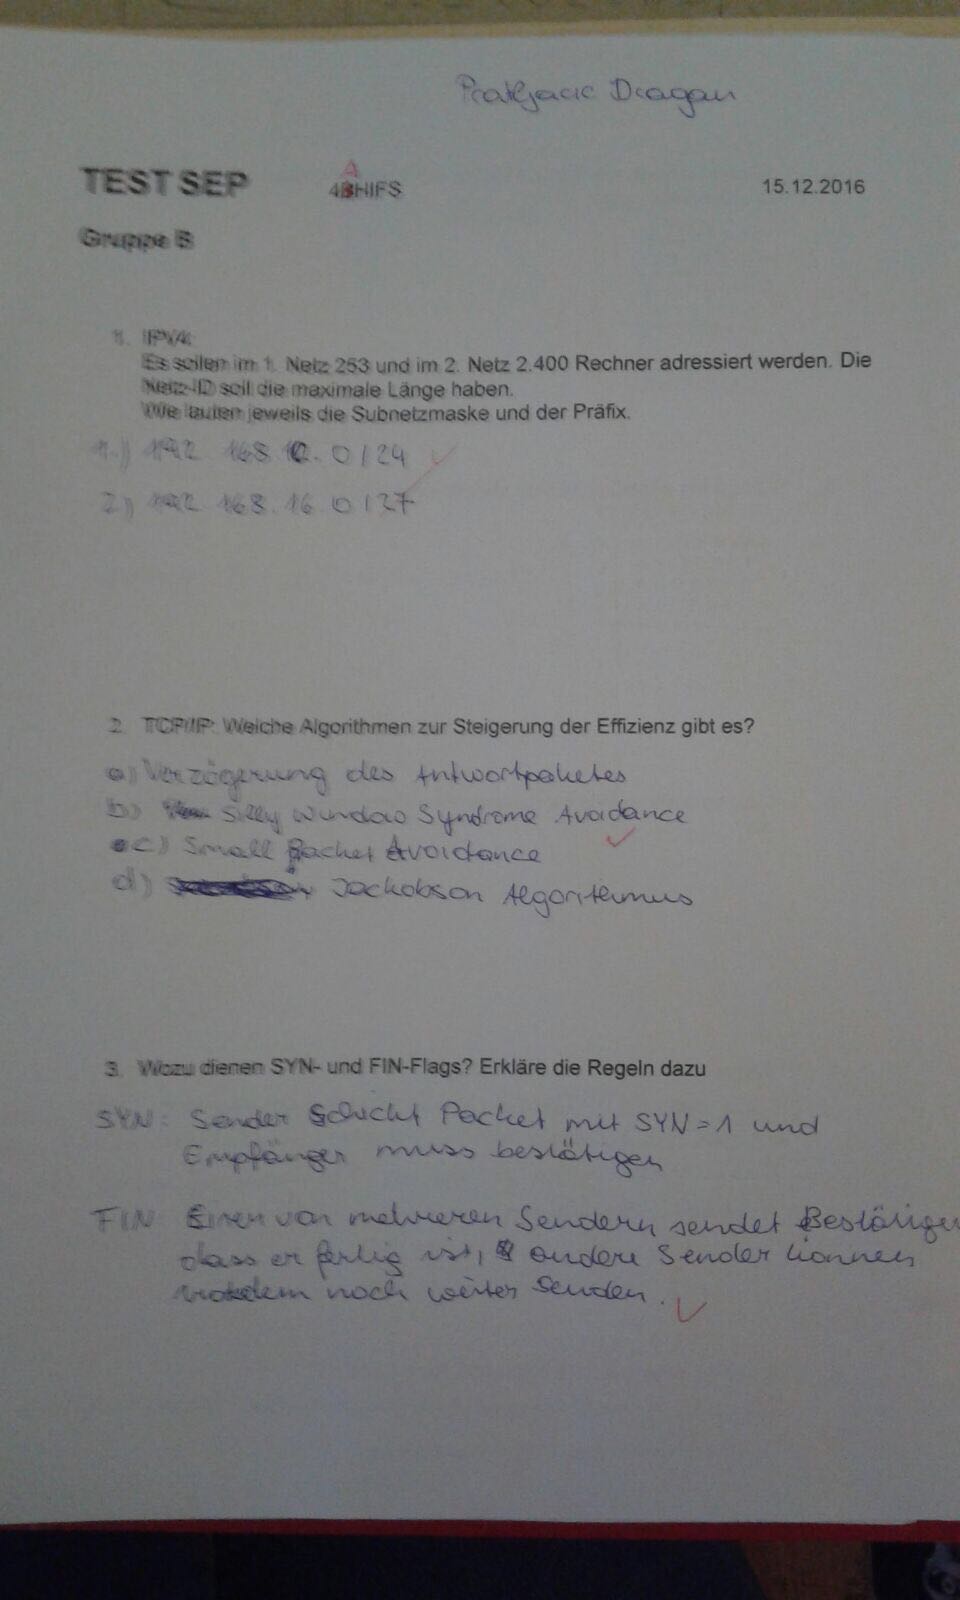 Dragan
TEST SEP 4AHIFS 15.12.2016
Gruppe B
1. IPV4:
Es sollen im 1. Netz 253 und im 2. Netz 2.400 Rechner adressiert werden. Die
Netz-ID soll die maximale Länge haben.
Wie lauten jeweils die Subnetzmaske und der Präfix.
1.) 192.168. .0/24
2) 192.168.16.0/27
2. TCP/IP: Welche Algorithmen zur Steigerung der Effizienz gibt es?
a) Verzögerung des Antwortpaketes
b) Silly Window Syndrome Avoidance
c) Small Packet Avoidance
d) Jackobson Algorithmus
3. Wozu dienen SYN- und FIN-Flags? Erkläre die Regeln dazu
SYN: Sender Schickt Packet mit SYN=1 und
Empfänger muss bestätigen
FIN: Einer von mehreren Sendern sendet
dass er fertig ist, andere Sender können
trotzdem noch weiter senden.